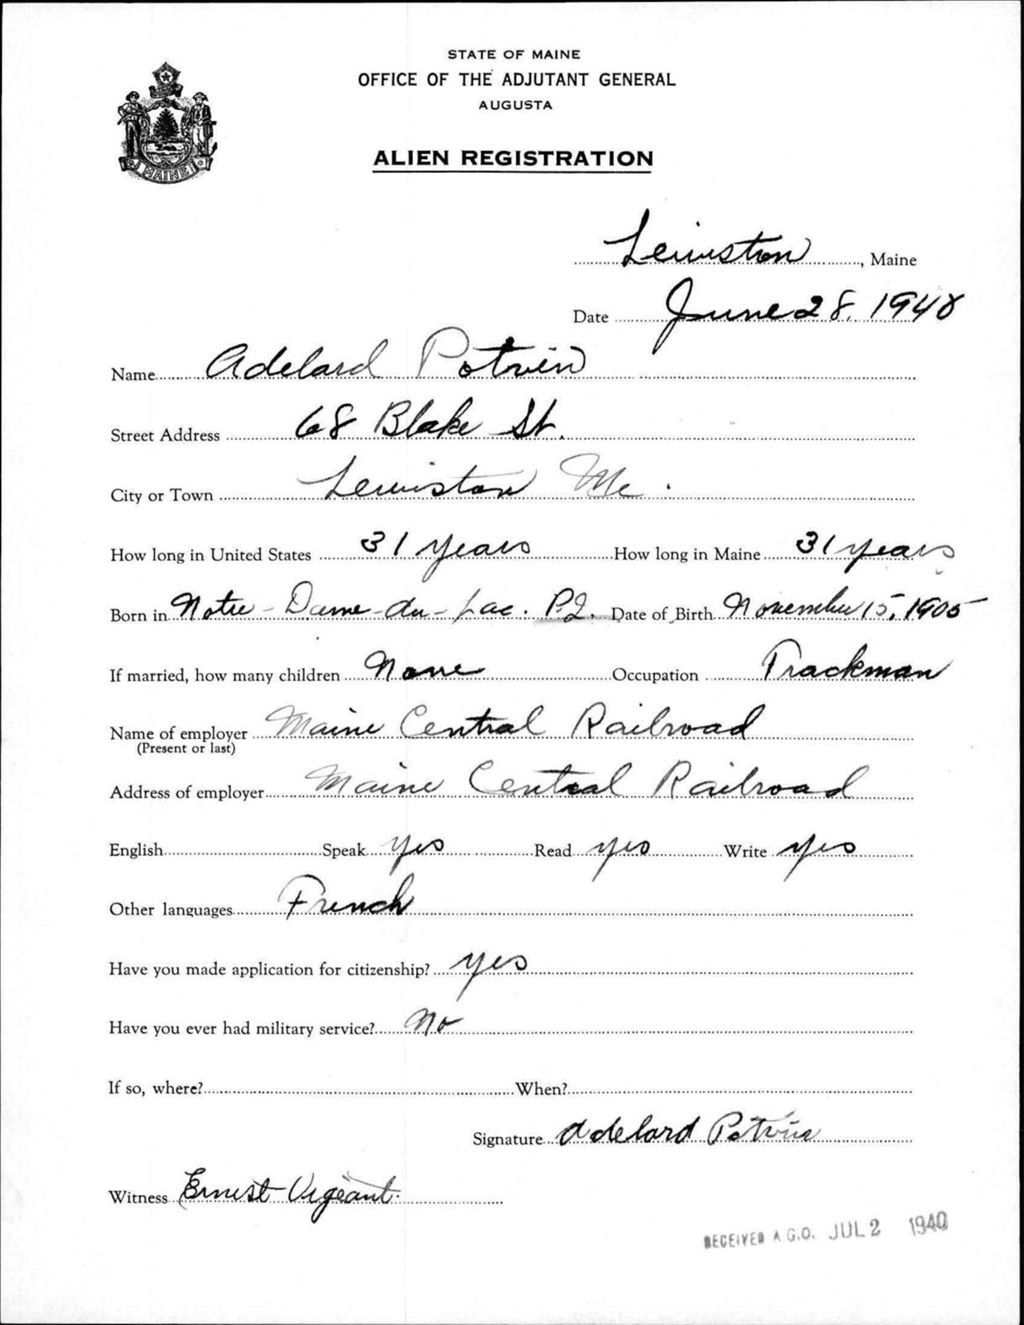 STATE OF MAINE
OFFICE OF THE ADJUTANT GENERAL
AUGUSTA
ALIEN REGISTRATION
MAINE
Lewiston, Maine
Date June 28, 1940
Name Adelard Potvin
Street Address 68 Blake St.
City or Town Lewiston Me.
How long in United States 31 years How long in Maine 31 years
Born in Notre-Dame-du-Lac. P.Q. Date of Birth November 15, 1905
If married, how many children None Occupation Trackman
Name of employer Maine Central Railroad
(Present or last)
Address of employer Maine Central Railroad
English Speak yes Read yes Write yes
Other languages French
Have you made application for citizenship? yes
Have you ever had military service? No
If so, where? When?
Signature Adelard Potvin
Witness Ernest Vigeant.
RECEIVED A.G.O. JUL 2 1940